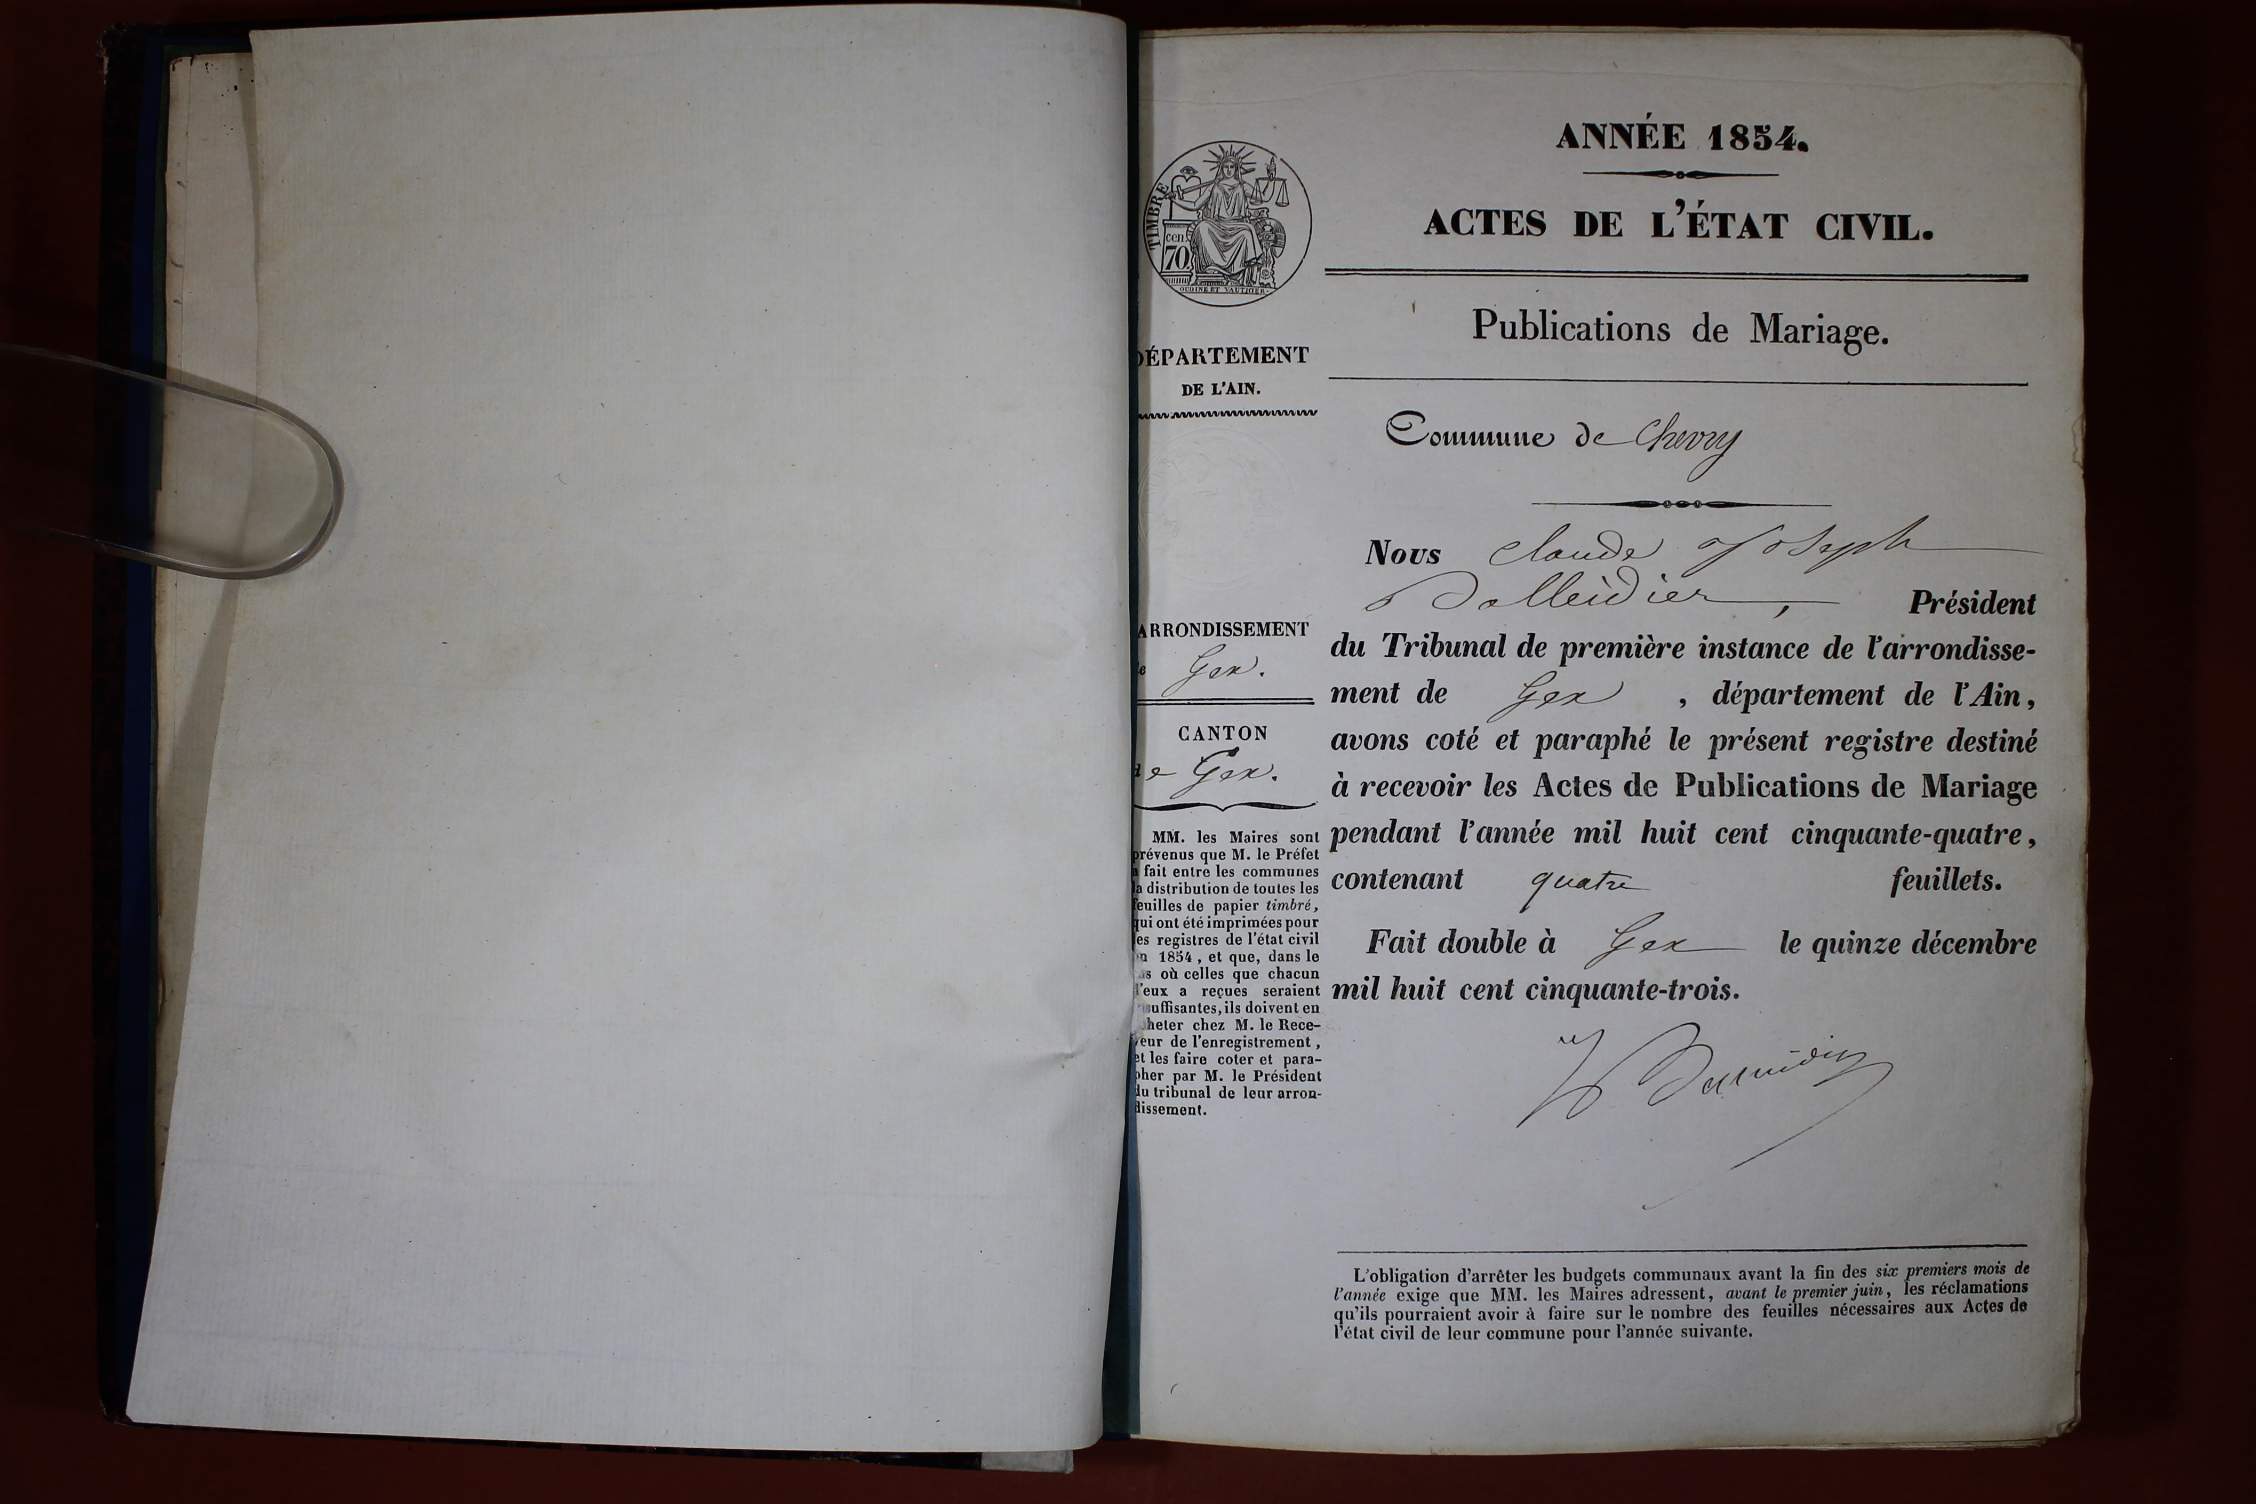 TIMBRE
cen.
70.
OUDINE ET VAUTIER.
DÉPARTEMENT
DE L'AIN.
ARRONDISSEMENT
de Gex.
CANTON
de Gex.
MM. les Maires sont
prévenus que M. le Préfet
a fait entre les communes
la distribution de toutes les
feuilles de papier timbré,
qui ont été imprimées pour
les registres de l'état civil
en 1854, et que, dans le
cas où celles que chacun
d'eux a reçues seraient
insuffisantes, ils doivent en
acheter chez M. le Rece-
veur de l'enregistrement,
et les faire coter et para-
pher par M. le Président
du tribunal de leur arron-
dissement.
ANNÉE 1854.
ACTES DE L'ÉTAT CIVIL.
Publications de Mariage.
Commune de Chevry
Nous Claude Joseph
Président
du Tribunal de première instance de l'arrondisse-
ment de Gex, département de l'Ain,
avons coté et paraphé le présent registre destiné
à recevoir les Actes de Publications de Mariage
pendant l'année mil huit cent cinquante-quatre,
contenant quatre feuillets.
Fait double à Gex le quinze décembre
mil huit cent cinquante-trois.
L'obligation d'arrêter les budgets communaux avant la fin des six premiers mois de
l'année exige que MM. les Maires adressent, avant le premier juin, les réclamations
qu'ils pourraient avoir à faire sur le nombre des feuilles nécessaires aux Actes de
l'état civil de leur commune pour l'année suivante.